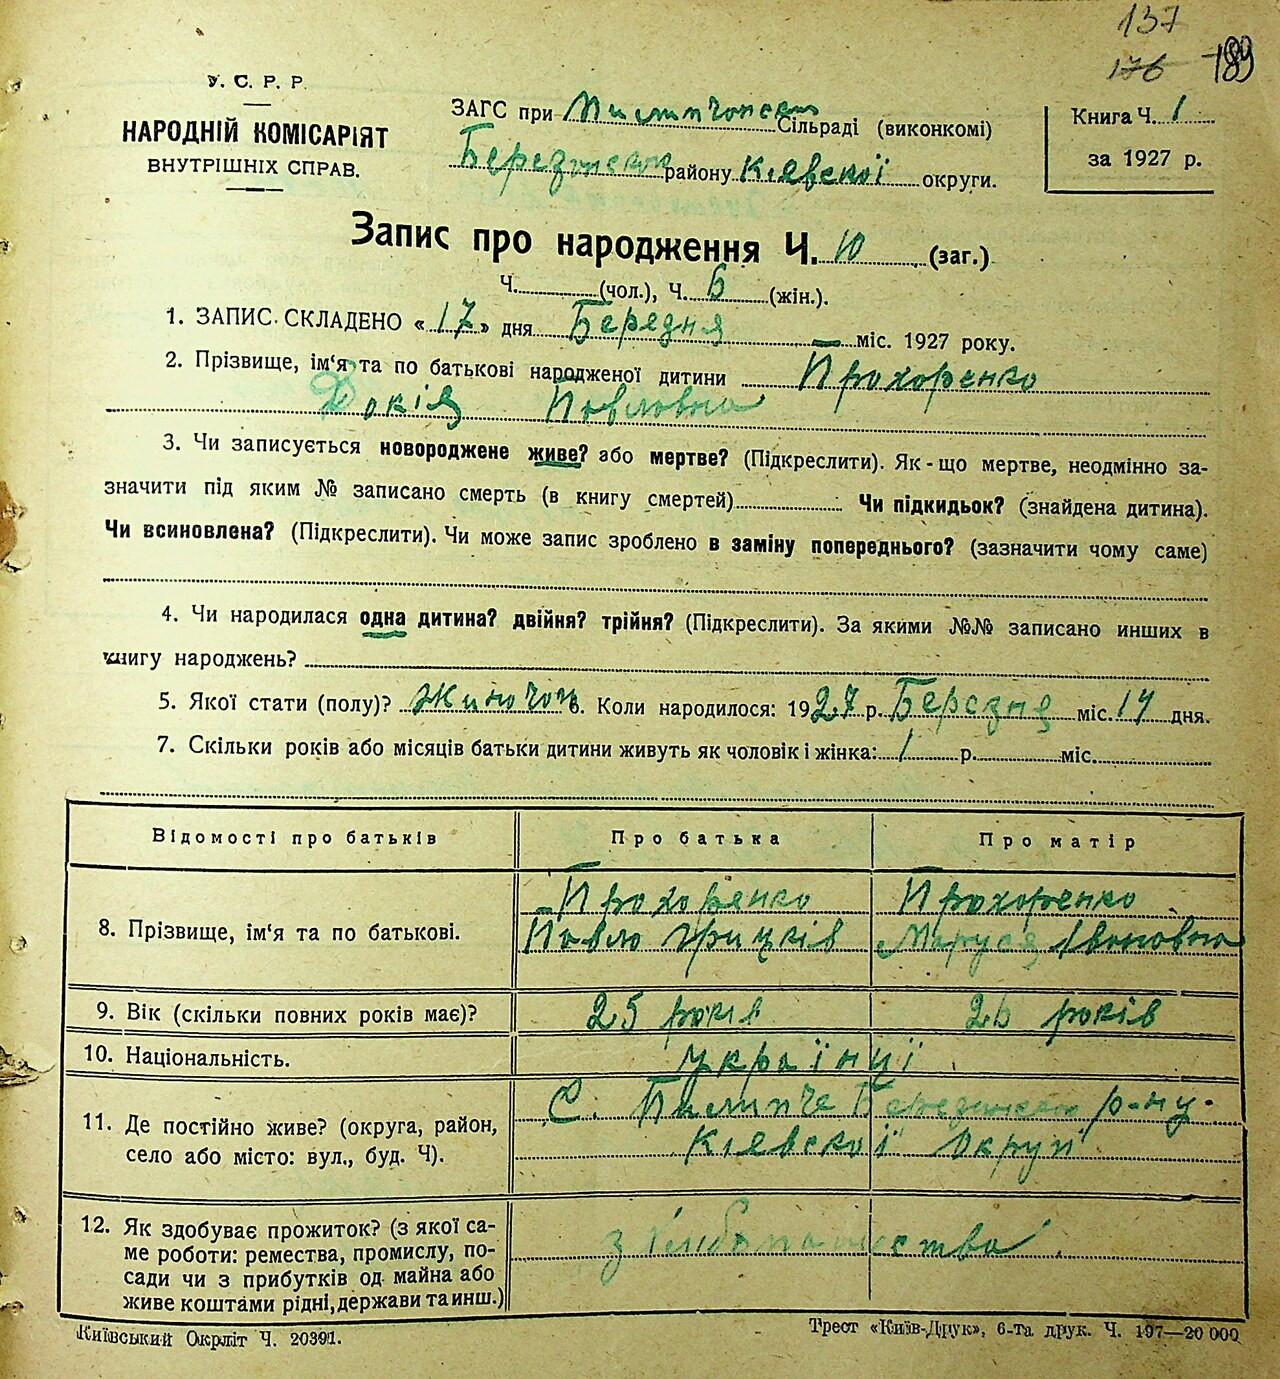 137
176 189
У. С. Р. Р.
НАРОДНІЙ КОМІСАРІЯТ
ВНУТРІШНІХ СПРАВ.
ЗАГС при Пилипчанськ Сільраді (виконкомі)
району Київскої округи.
Книга Ч. 1
за 1927 р.
Запис про народження Ч. 10 (заг.)
Ч. (чол.), Ч. 6 (жін.).
1. ЗАПИС СКЛАДЕНО «17» дня Березня міс. 1927 року.
2. Прізвище, ім'я та по батькові народженої дитини Прохоренко
Докія Павловна
3. Чи записується новороджене живе? або мертве? (Підкреслити). Як-що мертве, неодмінно за-
значити під яким № записано смерть (в книгу смертей) Чи підкидьок? (знайдена дитина).
Чи всиновлена? (Підкреслити). Чи може запис зроблено в заміну попереднього? (зазначити чому саме)
4. Чи народилася одна дитина? двійня? трійня? (Підкреслити). За якими №№ записано инших в
книгу народжень?
5. Якої стати (полу)? Жиночої. Коли народилося: 1927 р. Березня міс. 14 дня.
7. Скільки років або місяців батьки дитини живуть як чоловік і жінка: 1 р. міс.
Відомості про батьків Про батька Про матір
8. Прізвище, ім'я та по батькові. Прохоренко Прохоренко
Павло Грицків Маруся Івановна
9. Вік (скільки повних років має)? 25 років 26 років
10. Національність. українці
11. Де постійно живе? (округа, район,
село або місто: вул., буд. Ч). С. Пилипче р-ну
Київскої Округи
12. Як здобуває прожиток? (з якої са-
ме роботи: ремества, промислу, по-
сади чи з прибутків од майна або
живе коштами рідні, держави та инш.) з хлібопашества
Київський Окрліт Ч. 20391.
Трест «Київ-Друк», 6-та друк. Ч. 197—20 000